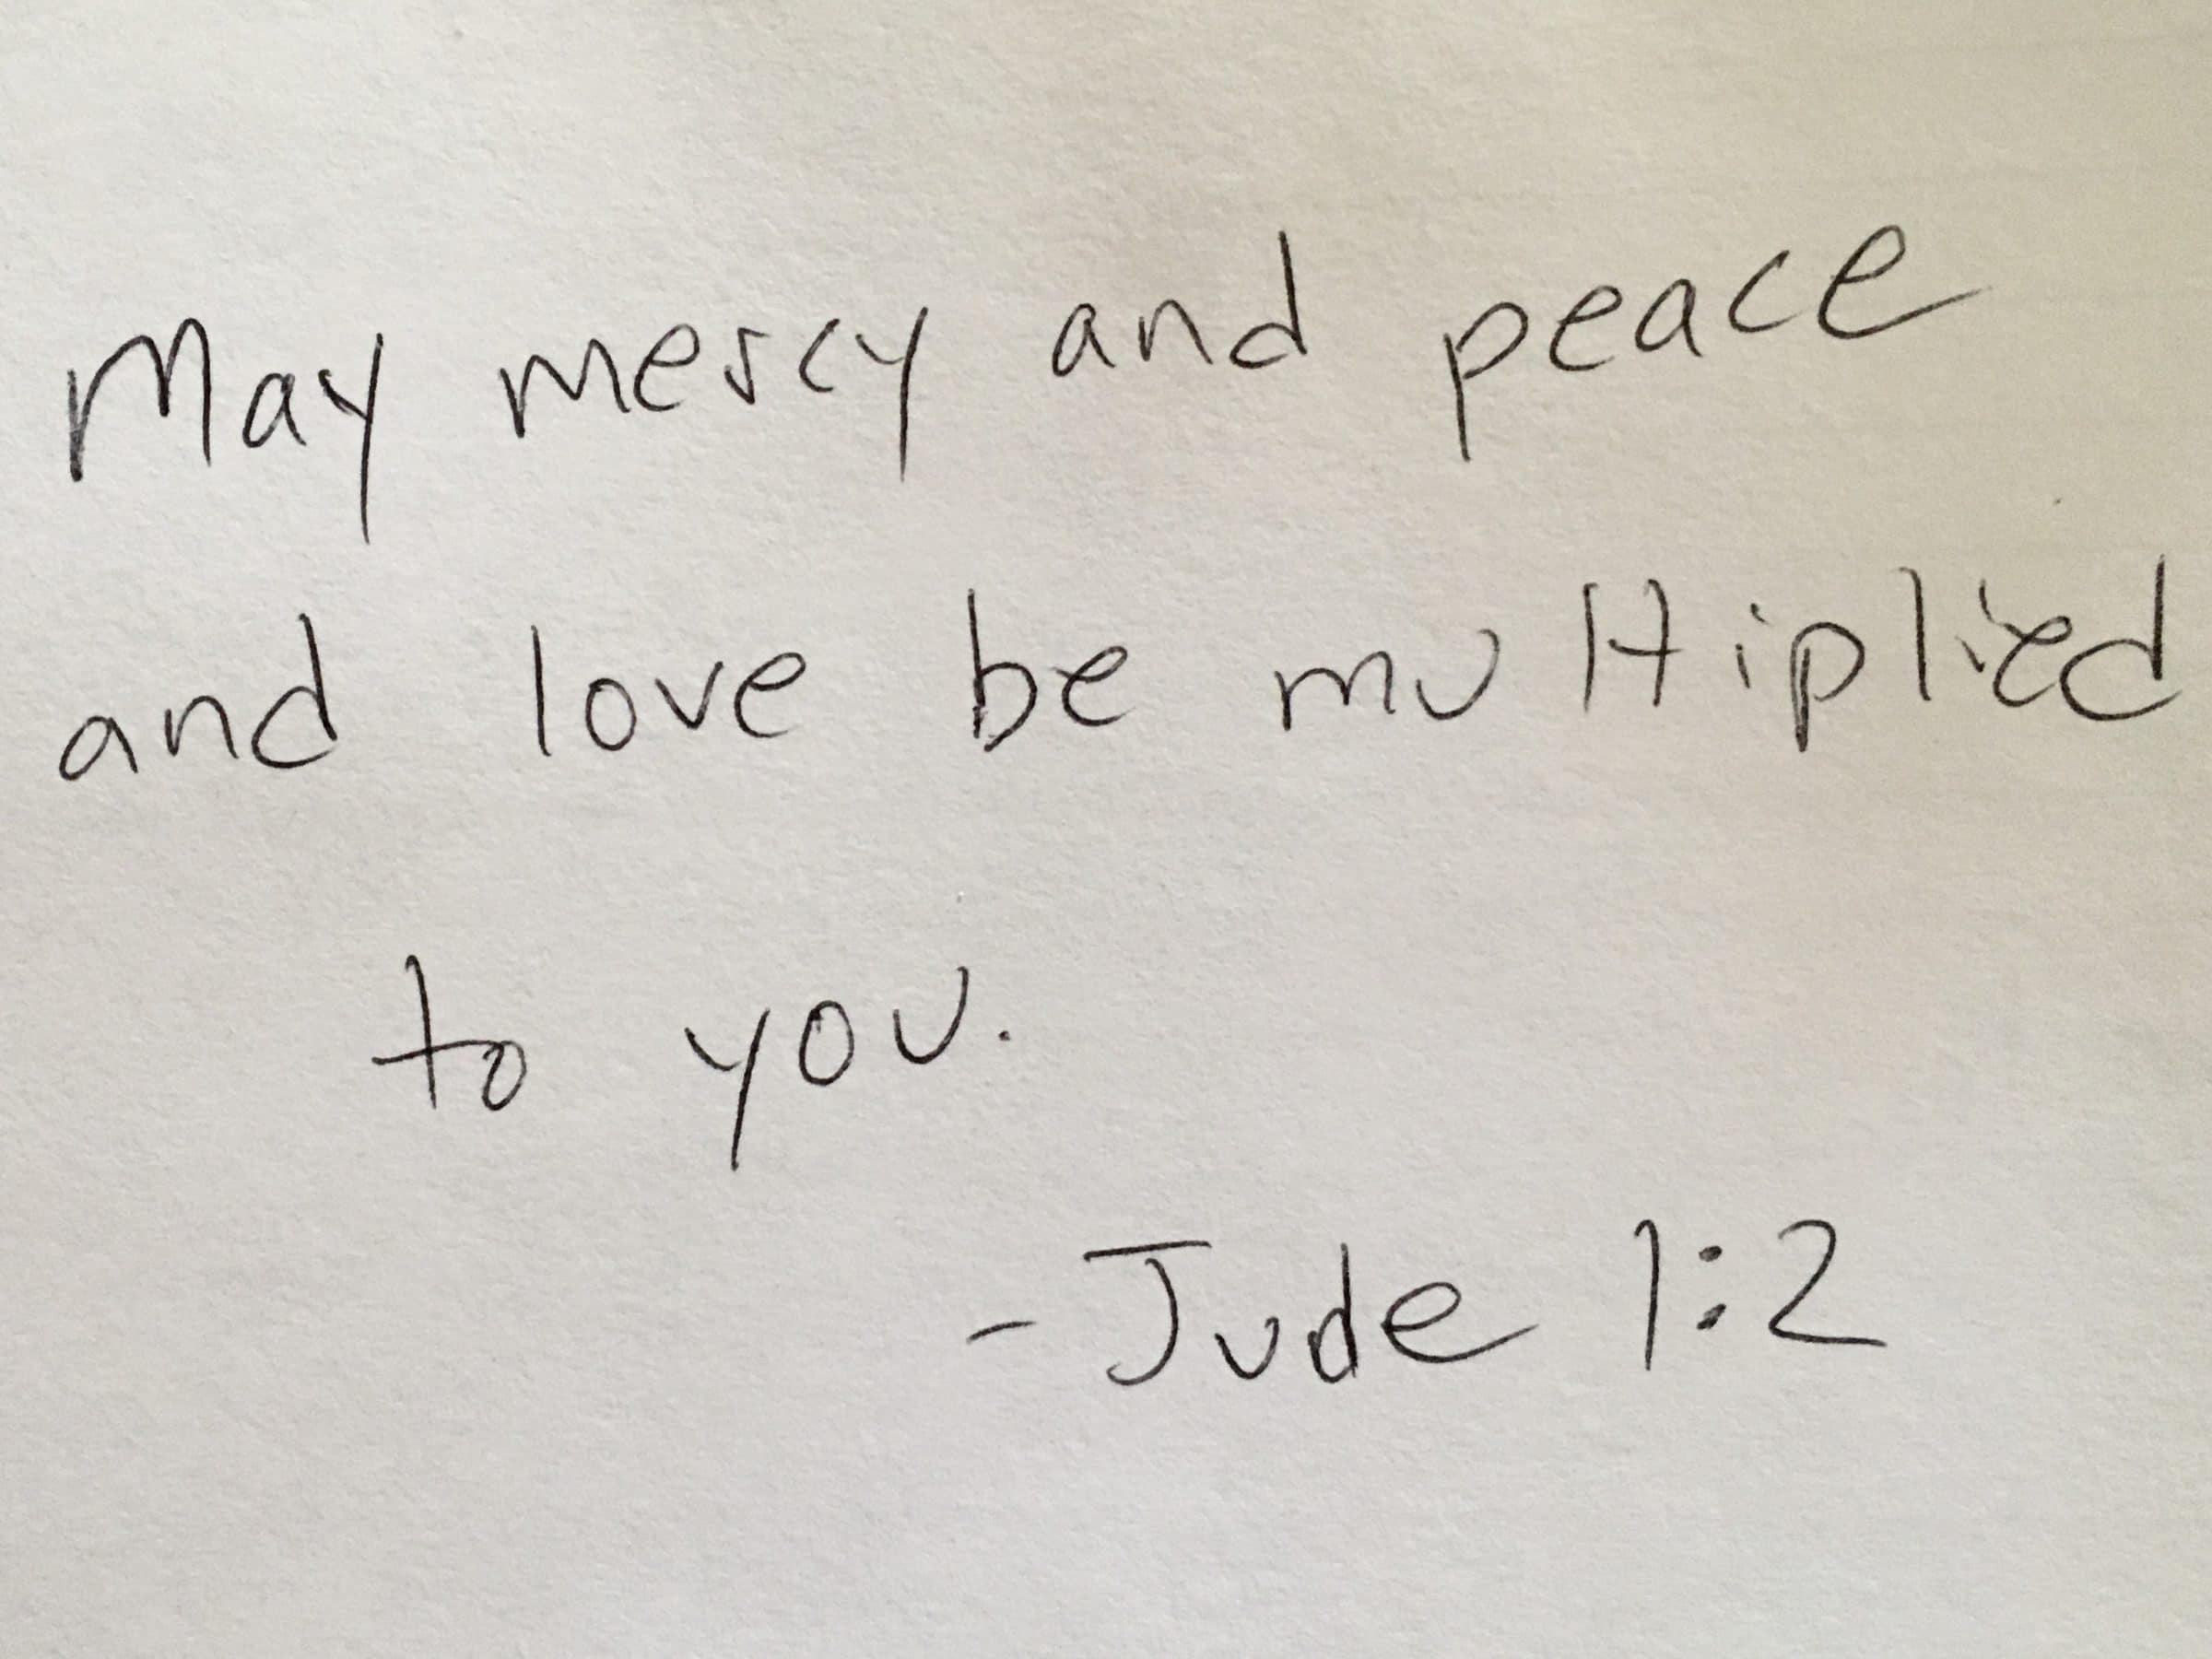 May mercy and peace
and love be multiplied
to you.
- Jude 1:2